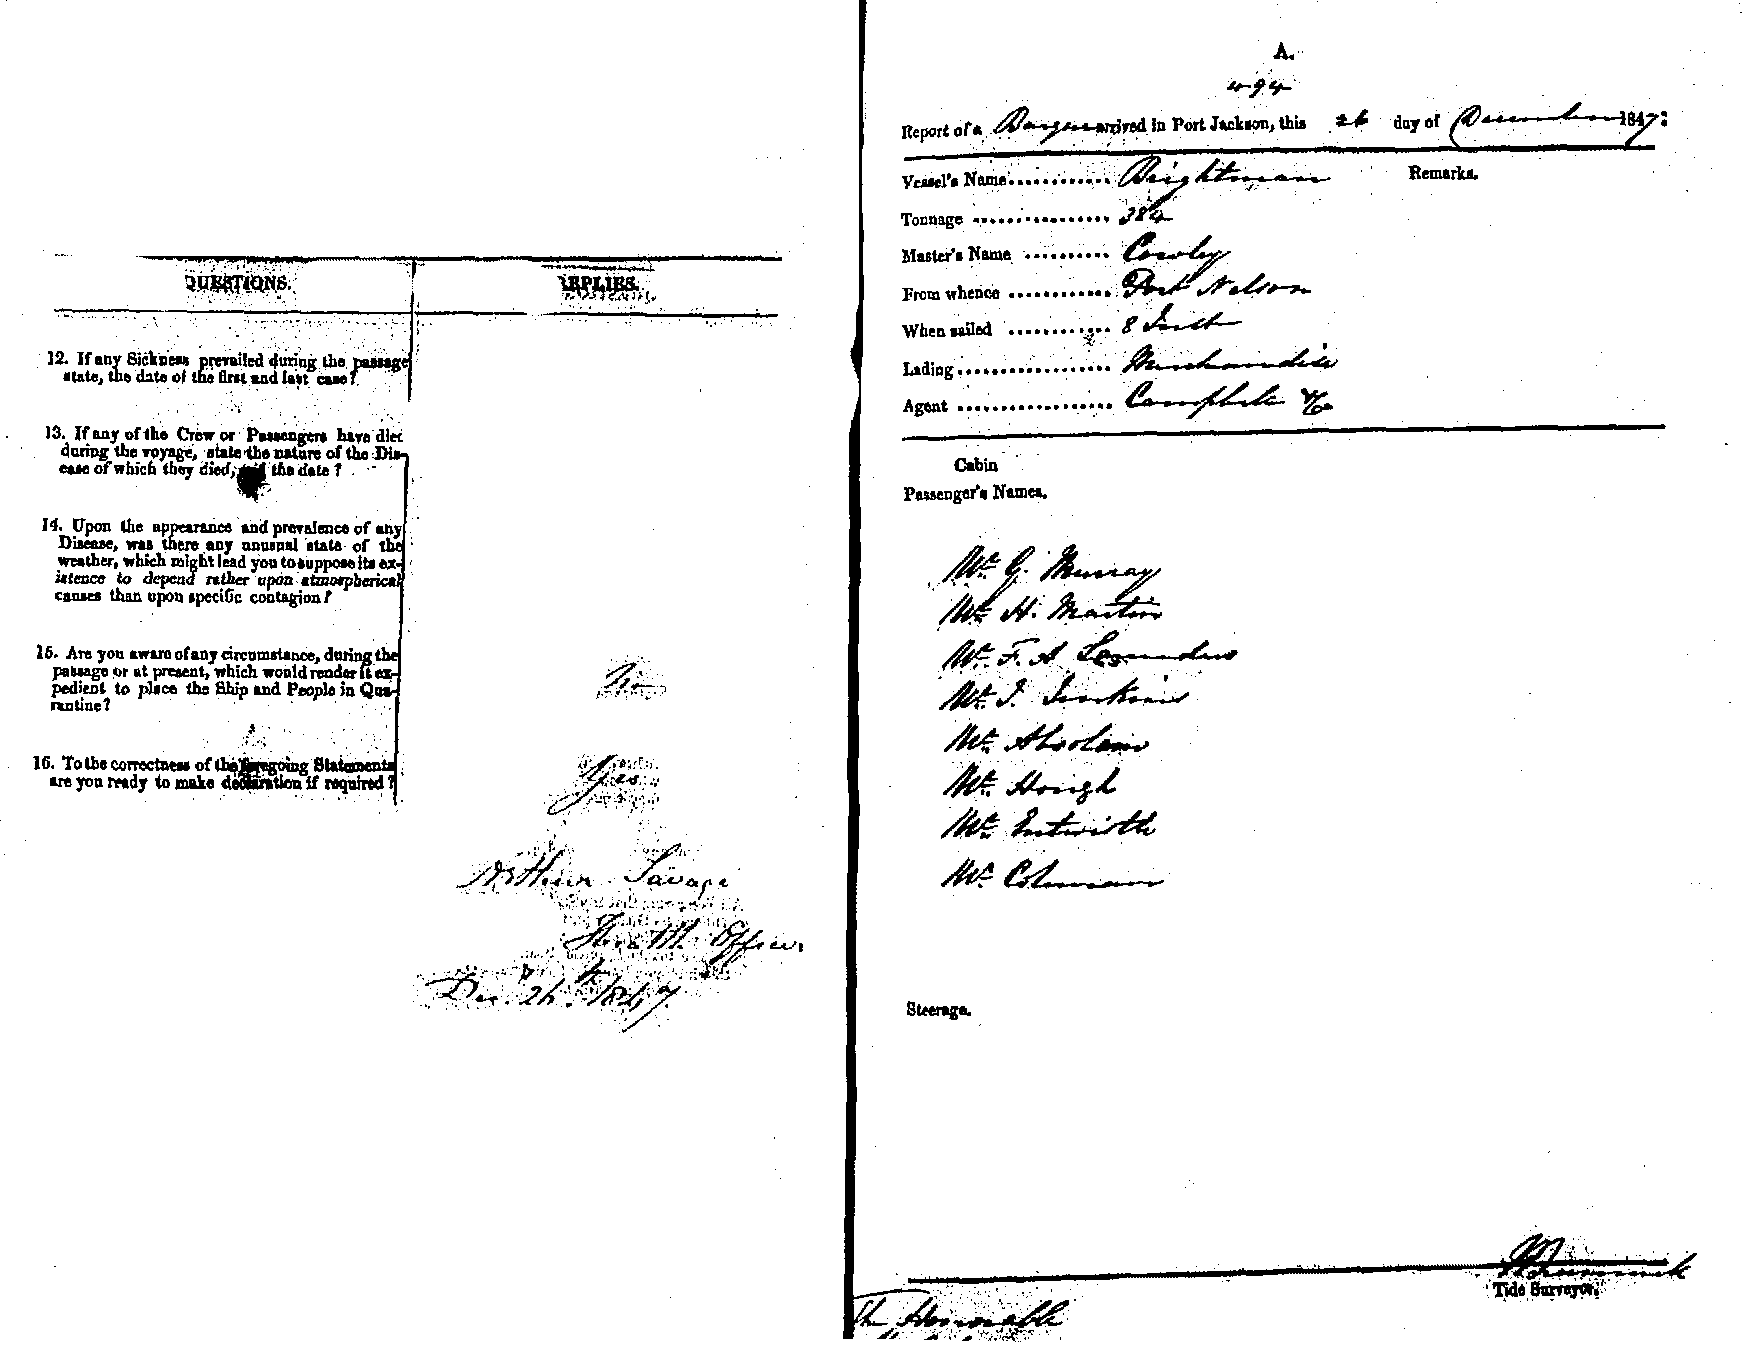 QUESTIONS.
REPLIES.
12. If any Sickness prevailed during the passage
state, the date of the first and last case?
13. If any of the Crew or Passengers have died
during the voyage, state the nature of the Dis-
ease of which they died, the date?
14. Upon the appearance and prevalence of any
Disease, was there any unusual state of the
weather, which might lead you to suppose its ex-
istence to depend rather upon atmospherical
causes than upon specific contagion?
15. Are you aware of any circumstance, during the
passage or at present, which would render it ex-
pedient to place the Ship and People in Qua-
rantine?
No
16. To the correctness of the foregoing Statements
are you ready to make declaration if required?
Yes
Arthur Savage
Health Officer
Dec. 26th 1847
A.
494
Report of a Barque arrived in Port Jackson, this 26 day of December 1847:
Vessel's Name Brightman
Remarks.
Tonnage 384
Master's Name Cowley
From whence Port Nelson
When sailed 8 Inst
Lading Merchandise
Agent Campbell & Co
Cabin
Passenger's Names.
Mr. G. Murray
Mr. H. Martin
Mr. F. A
Mr. J. Jenkins
Mr. Absolom
Mr. Hough
Mr. Entwistle
Mr. Coleman
Steerage.
Tide Surveyor.
The Honorable